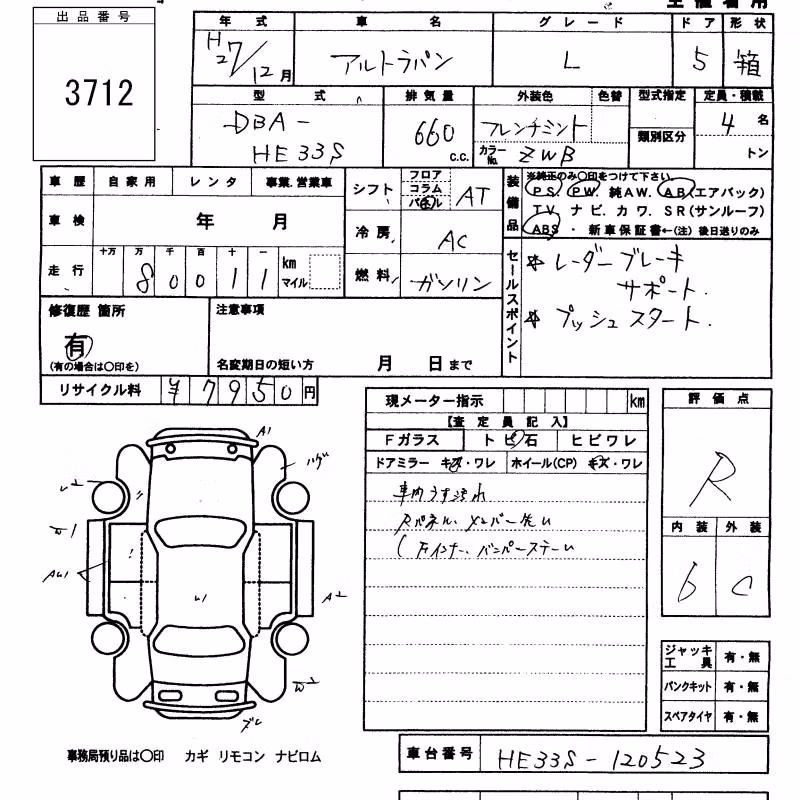 出品番号
3712
年式 車名 グレード ドア 形状
H27/12月 アルトラパン L 5 箱
型式 排気量 外装色 色替 型式指定 定員・積載
DBA- 660 フレンチミント 4名
HE33S c.c. カラーNo. ZWB 類別区分 トン
車歴 自家用 レンタ 事業.営業車
シフト フロア コラム パネル AT
車検 年 月
冷房 AC
走行 十万 万 千 百 十 一
80011 km マイル
燃料 ガソリン
装備品 ※純正のみ〇印をつけて下さい。
PS PW. 純AW. AB(エアバック)
TV. ナビ. カワ. SR(サンルーフ)
ABS ・ 新車保証書←(注)後日送りのみ
セールスポイント
レーダーブレーキ
サポート.
プッシュスタート.
修復歴 箇所
有
(有の場合は〇印を)
注意事項
名変期日の短い方 月 日まで
リサイクル料 ¥7950円
現メーター指示 km
【査定員記入】
Fガラス トビ石 ヒビワレ
ドアミラー キズ・ワレ ホイール(CP) キズ・ワレ
車内うす汚れ
Rパネル、メンバー洗い
評価点
R
内装 外装
b C
A1
ハゲ
U2
W1
AU1
U1
A2
W2
ジャッキ工具 有・無
パンクキット 有・無
スペアタイヤ 有・無
事務局預り品は〇印 カギ リモコン ナビロム
車台番号 HE33S-120523